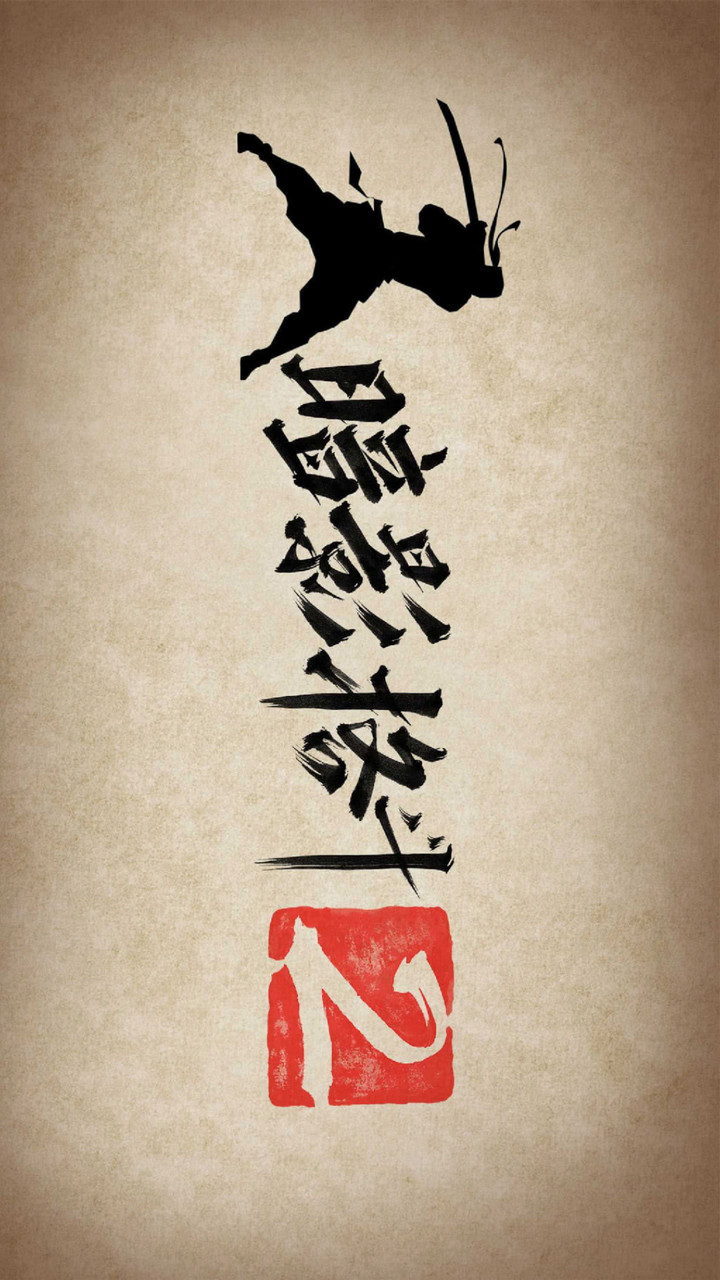 暗影格斗2